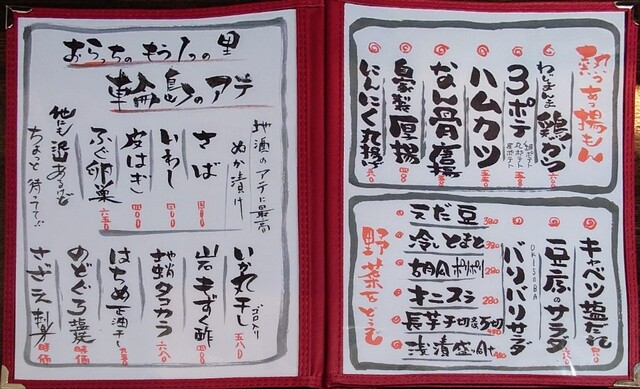 おらっちのもう1つの里
輪島のアテ
地酒のアテに最高
ぬか漬け
さば
いわし
皮はぎ
ふぐ卵巣
650
他にも沢山あるけど
ちょっと待ってて
いか丸干し
ゴロ入り
580
岩もずく酢
地蛸タコカラ
680
はちめ正油干し
のどぐろ塩焼
時価
さざえ刺身
時価
熱っあっ揚もん
わじまんま
鶏かつ
3ポテ
ハムカツ
なん骨唐揚
自家製厚揚
にんにく丸揚げ
キャベツ塩だれ
豆腐のサラダ
バリバリサラダ
OKISOBA
えだ豆
380
冷しとまと
380
胡瓜ポリポリ
280
オニスラ
280
長芋千切
浅漬盛
野菜をとろう